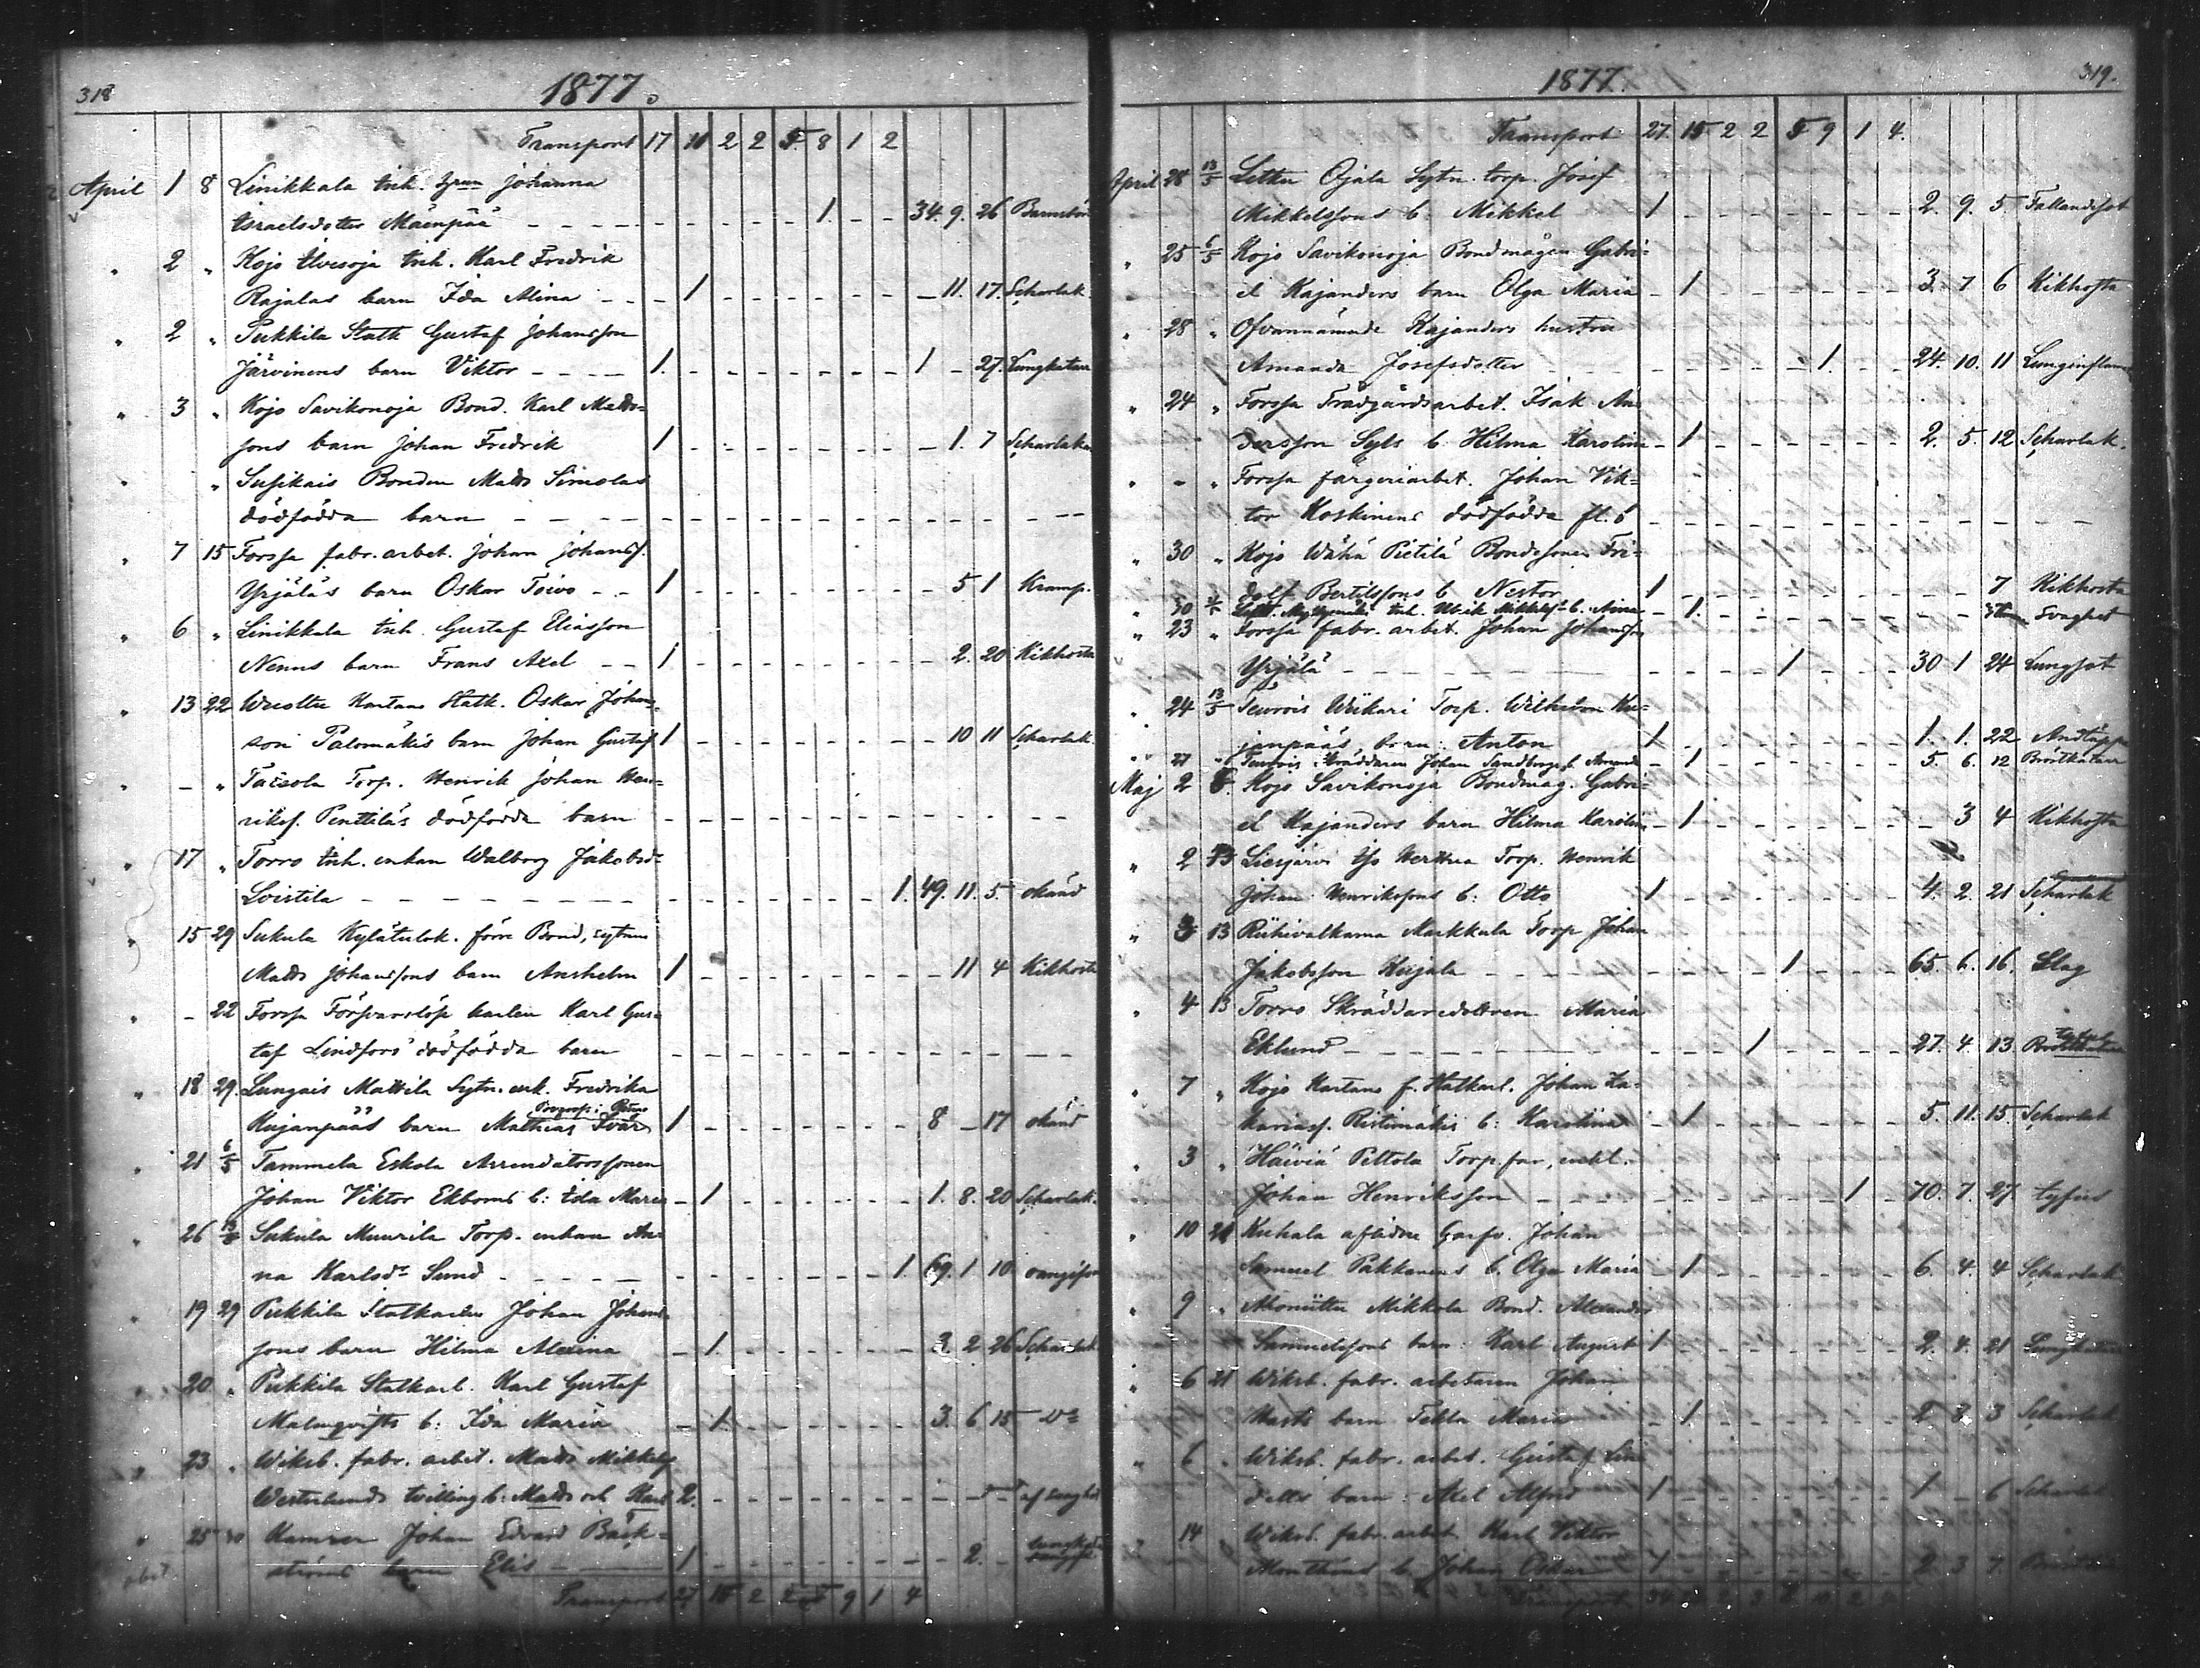 318
1877.
Transport 17 11 2 2 5. 8 1 2
April 1 8 Linikkala inh. hru Johanna
Israelsdotter Mäenpää - - - 1. - - 34. 9. 26 Barnsbörd
" 2 " Kojo Ilvesoja inh. Karl Fredrik
Rajalas barn Ida Alina - - - 1 - - - 11. 17. Scharlak.
" 2 " Pukkila Statk Gustaf Johansson
Järvinens barn Viktor - - - 1. - - - 1 - 27. Lungkatarr
" 3 " Kojo Savikonoja Bond. Karl Matts-
sons barn Johan Fredrik 1 - - - 1. 7 Scharlakan
" " Susikais Bonden Matts Simolas
dödfödda barn - - -
" 7 15 Forssa fabr. arbet. Johan Johanss.
Yrjäläs barn Oskar Toivo - - 1 - - - 5 1 Kramp.
" 6 " Linikkala inh. Gustaf Eliasson
Nenns barn Frans Axel - - 1 - - - 2. 20 Kikhosta
" 13 22 Kartano Statk. Oskar Johans-
son Palomäkis barn Johan Gustaf 1 - - - 10 11 Scharlak.
" - " Torp. Henrik Johan Hen-
rikss. Penttiläs dödfödda barn - - -
" 17 " Torro inh. enkan Walborg Jakobsdr
Loistila - - - 1. 49. 11. 5. okänd
" 15 29 Sukula Kylätulok. förre Bond, sytnm
Matts Johanssons barn Anshelm 1 - - - 11 4 Kikhosta
" - 22 Forssa Försvarslös karlen Karl Gus-
taf Lindfors dödfödda barn - - -
" 18 29. Lungais Mattila Sytn. enk. Fredrika
Kujanpääs barn Mathias Ivar 1 - - - 8 - 17 okänd
" 21 6/5 Tammela Eskola Arrendatorssonen
Johan Viktor Ekboms b: Ida Maria - 1 - - - 1. 8. 20 Scharlak.
" 26 13/5 Sukula Muurila Torp. enkan An-
na Karlsdr Sund - - - 1 69. 1 10
" 19 29 Pukkila Statkarlen Johan Johans-
sons barn Hilma Alexina - 1. - - - 3. 2 26 Scharlak
" 20 " Pukkila Statkarl. Karl Gustaf
Malmqvists b: Ida Maria - 1. - - - 3. 6 15 Do
" 23 " Wiksb. fabr. arbet. Matts Mikkelss
Westerlunds tvilling b: Matts och Karl 2. - - -
" 25 30 Kamrer Johan Edvard Bäck-
ströms barn Elis - - - 1 - - - 2. -
Transport 27 15 2 2 5 9 1 4
319.
1877.
Transport 27. 15 2 2 5 9 1 4.
April 28 13/5 Letku Ojala Sytn. torp. Josef
Mikkelssons b. Mikkel 1 - - - 2. 9. 5. Fallandesot
" 25 6/5 Kojo Savikonoja Bondmågen Gabri-
el Kajanders barn Olga Maria - 1 - - - 3. 7 6 Kikhosta
" 28 " Ofvannämnde Kajanders hustru
Amanda Josefsdotter - - - 1. 24. 10. 11 Lunginflam
" 24 " Forssa Trädgårdsarbet. Isak An-
dersson Syls b. Hilma Karolina - 1 - - - 2. 5. 12 Scharlak.
" - " Forssa färgeriarbet. Johan Vik-
tor Koskinens dödfödda fl. b - - -
" 30 " Kojo Wähä Pietilä Bondesonen Fri-
dolf Bertilssons b. Nestor 1 - - - 7 Kikhosta
" 30 inh. Ulrik Mikkelss. b. Anna - 1. - - - Svaghet
" 23 " Forssa fabr. arbet. Johan Johansson
Yrjälä - - - 1 - - - 30 1 24 Lungsot
" 24 13/5 Teurois Wiikari Torp. Wilhelm Ku-
janpääs, barn: Anton 1 - - - 1. 1. 22 Andtäppa
" 27 Teurois Skräddaren Johan Sandbergs b. Amanda - 1 - - - 5. 6. 12 Bröstkatarr
Maj 2 6. Kojo Savikonoja Bondmåg. Gabri-
el Kajanders barn Hilma Karolina - 1 - - - 3 4 Kikhosta
" 2 13 Liesjärvi Torp. Henrik
Johan Henrikssons b: Otto 1 - - - 4. 2. 21 Scharlak
" 3 13 Riihivalkama Markkula Torp Johan
Jakobsson Kujala - - - 1 - - - 65. 6. 16. Slag
" 4 13 Torro Skräddaredottren Maria
Eklund - - - 1 - - - 27. 4. 13
" 7 " Kojo Kartano f. Statkarl. Johan Za-
kariass. Ristimäkis b: Karolina - 1 - - - 5. 11. 15. Scharlak
" 3 " Häiviä Pottola Torp. far, enkl.
Johan Henriksson - - - 1 - 70. 7. 27 tyfus
" 10 21 Kuhala aflidne Garfv. Johan
Samuel Pakkanens b. Olga Maria - 1 - - - 6. 4. 4 Scharlak
" 9 " Mikkola Bond. Alexander
Samuelssons barn: Karl August 1 - - - 2. 4. 21 Lungkatarr
" 6 21 Wiksb. fabr. arbetaren Johan
barn Tekla Maria - 1 - - - 2 8 3 Scharlak
" 6 " Wiksb. fabr. arbet. Gustaf Lin-
dells barn: Axel Alfred 1 - - - 1 - 6 Scharlak
" 14 Wiksb. fabr. arbet. Karl Viktor
b. Johan Oskar 1 - - - 2 3 7
Transport 34